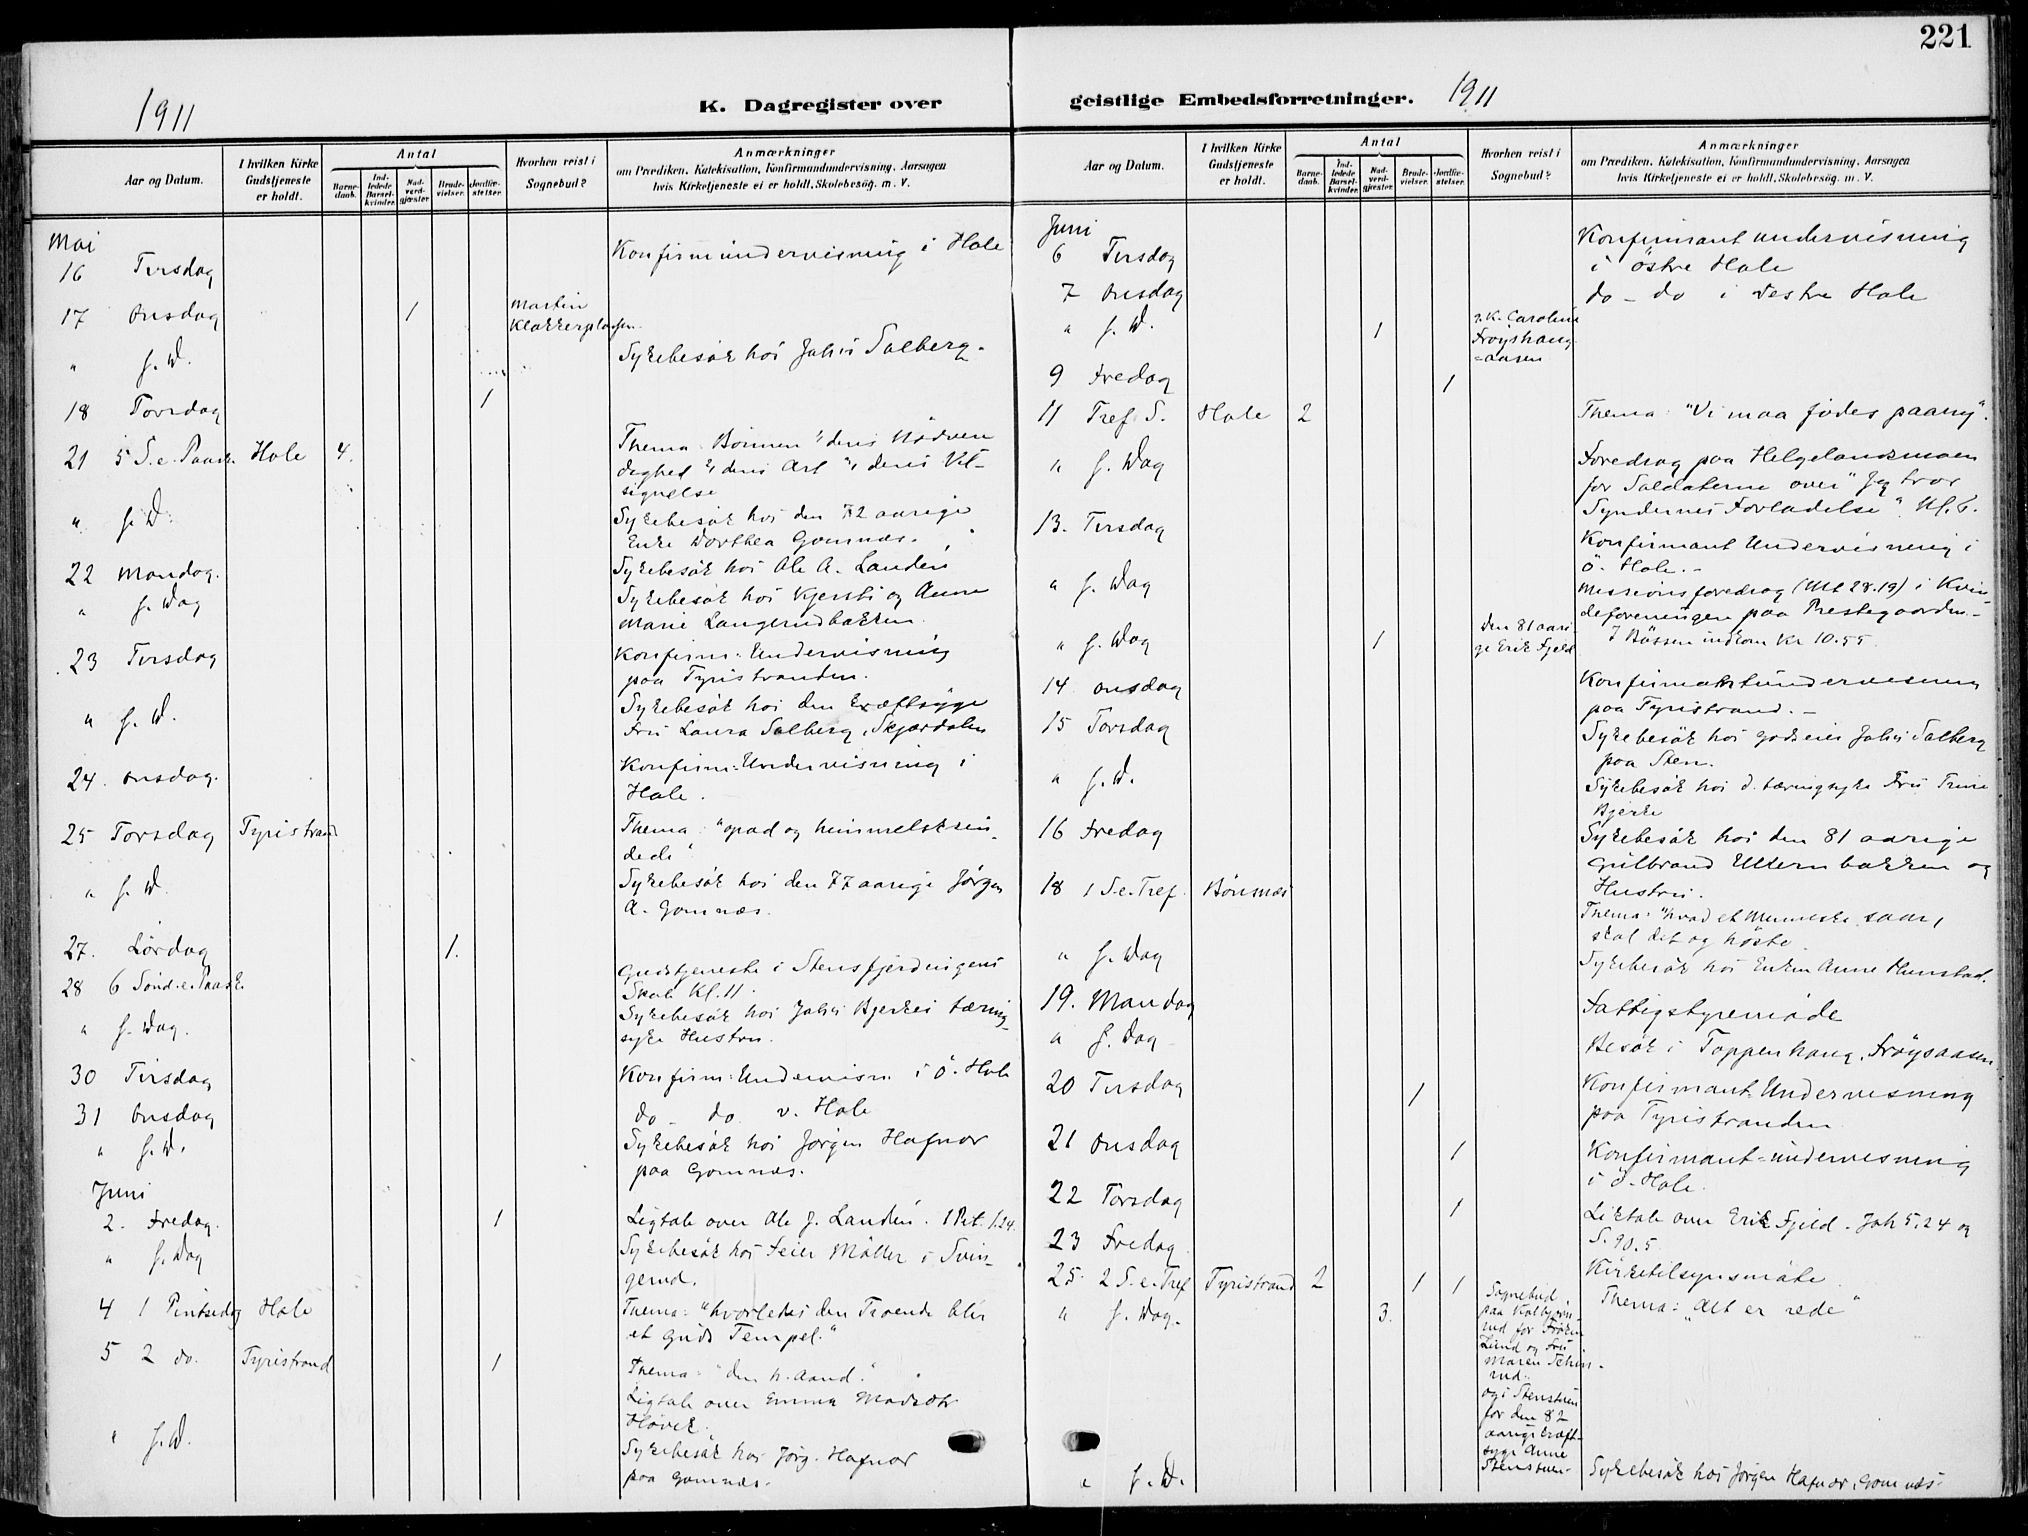 221
1911
K. Dagregister over
geistlige Embedsforretninger. 1911
Aar og Datum.
I hvilken Kirke Gudstjeneste er holdt.
Antal
Barnedaab.
Indledede Barselkvinder.
Nadverdgjæster.
Brudevielser.
Jordfæstelser.
Hvorhen reist i Sognebud?
Anmærkninger
om Prædiken, Katekisation, Konfirmandundervisning, Aarsagen
hvis Kirketjeneste ei er holdt, Skolebesög. m. V.
Mai
16 Tirsdag Konfirmundervisning i Hole
17 Onsdag 1 Martin
Klokkerplassen.
" s. D. Sykebesök hos Johs Solberg.
18 Torsdag 1
21 5 S.e.Paask. Hole 4. Thema: Bönnen 1/ dens Nödven
dighed 2/ dens Art 3/ dens Vel-
signelse
" s. D. Sykebesök hos den 72 aarige
Enke Dorthea Gomnæs.
22 Mandag. Sykebesök hos Ole A. Landen
" s. Dag Sykebesök hos Kjersti og Anne
Marie Langerudbakken.
23 Tirsdag Konfirm: Undervisning
paa Tyristranden.
" s. D. Sykebesök hos den kræftsyge
Fru Laura Solberg, Skjærdalen
24. Onsdag. Konfirm: Undervisning i
Hole.
25 Torsdag Tyristrand Thema: "opad og himmelsksin
dede"
" s. D. Sykebesök hos den 77 aarige Jørgen
A. Gomnæs.
27. Lørdag 1.
28 6 Sönd.e.Paask. Gudstjeneste i Stensfjerdingens
Skole Kl. 11.
" s. Dag. Sykebesök hos Johs Bjerkes tæring
syke Hustru.
30 Tirsdag Konfirm: Undervisn i ö. Hole
31 Onsdag do do v. Hole
" s. D. Sykebesök hos Jørgen Hafnor
paa Gomnæs.
Juni
2. Fredag. 1 Ligtale over Ole J. Landen. 1 Pet. 1.24.
" s. Dag Sykebesök hos Feier Möller i Svin
gerud.
4 1 Pintsedag Hole Thema: "hvorledes den Troende blir
et Guds Tempel."
5 2 do. Tyristrand 1 Thema: "den h. Aand."
Ligtale over Emma Madsdtr
Høvek.
" s. D. Sykebesök hos Jörg. Hafnor
paa Gomnæs.
Aar og Datum.
I hvilken Kirke Gudstjeneste er holdt.
Antal
Barnedaab.
Indledede Barselkvinder.
Nadverdgjæster.
Brudevielser.
Jordfæstelser.
Hvorhen reist i Sognebud?
Anmærkninger
om Prædiken, Katekisation, Konfirmandundervisning, Aarsagen
hvis Kirketjeneste ei er holdt, Skolebesög. m. V.
Juni
6 Tirsdag Konfirmantundervisning
i östre Hole
7 Onsdag do - do i vestre Hole
" s. D. 1 Caroline
Fröyshaug
=aasen
9 Fredag 1
11 Tref. S. Hole 2 Thema: "Vi maa fødes paany".
" s. Dag Foredrag paa Helgelandsmoen
for Soldaterne over "Jeg tror
Syndernes Forladelse". Kl. 6.
13. Tirsdag Konfirmant Undervisning i
ö. Hole.
" s. Dag Missionsforedrag (Mt 28.19) i Kvin
deforeningen paa Prestegaarden
I Bössen indkom Kr 10.55
" s. Dag 1 Den 81 aari
ge Erik Fjeld
14 Onsdag Konfirmantundervisning
paa Tyristrand.
15 Torsdag Sykebesök hos godseier Johs Solberg
paa Sten.
" s. D. Sykebesök hos d. tæringsyke Fru Trine
Bjerke
16 Fredag Sykebesök hos den 81 aarige
Gulbrand Ulternbakken og
Hustru.
18 1 S.e.Tref. Bönsnæs Thema: "hvad et Menneske saar,
skal det og höste
" s. Dag Sykebesök hos Enken Anne
19. Mandag Fattigstyremöde
" s. Dag Besök i Toppenhaug, Fröysaasen
20 Tirsdag 1 Konfirmant Undervisning
paa Tyristranden
21 Onsdag 1 Konfirmant-undervisning
i ö. Hole.
22 Torsdag 1 Liktale over Erik Fjeld. Joh 5,24 og
S. 90.5
23 Fredag Kirketilsynsmöte.
25. 2 S.e.Tref Tyristrand 2 1 1 Thema: "Alt er rede"
" s. Dag. 3. Sognebud
paa
rud for Fröken
Lund og Fru
Maren
rud
og i Stenstuen
for den 82
aarige kræft-
syge Anne
Stenstuen.
" s. D. Sykebesök hos Jørgen Hafnor, Gomnæs.